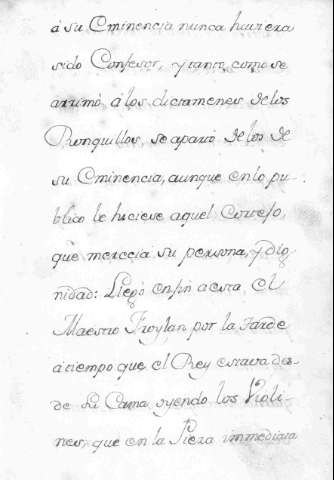 á su Eminencia nunca huviera
sido Confesor, y tanto como se
arrimó á los dictamenes de los
Ronquillos, se apartó de los de
su Eminencia, aunque en lo pu-
blico le hiciese aquel Cortejo,
que merecia su persona, y Dig-
nidad: Llegó en fin a esta el
Maestro Froylan por la tarde
á tiempo que el Rey estava des-
de la Cama oyendo los Violi-
nes, que en la Pieza immediata